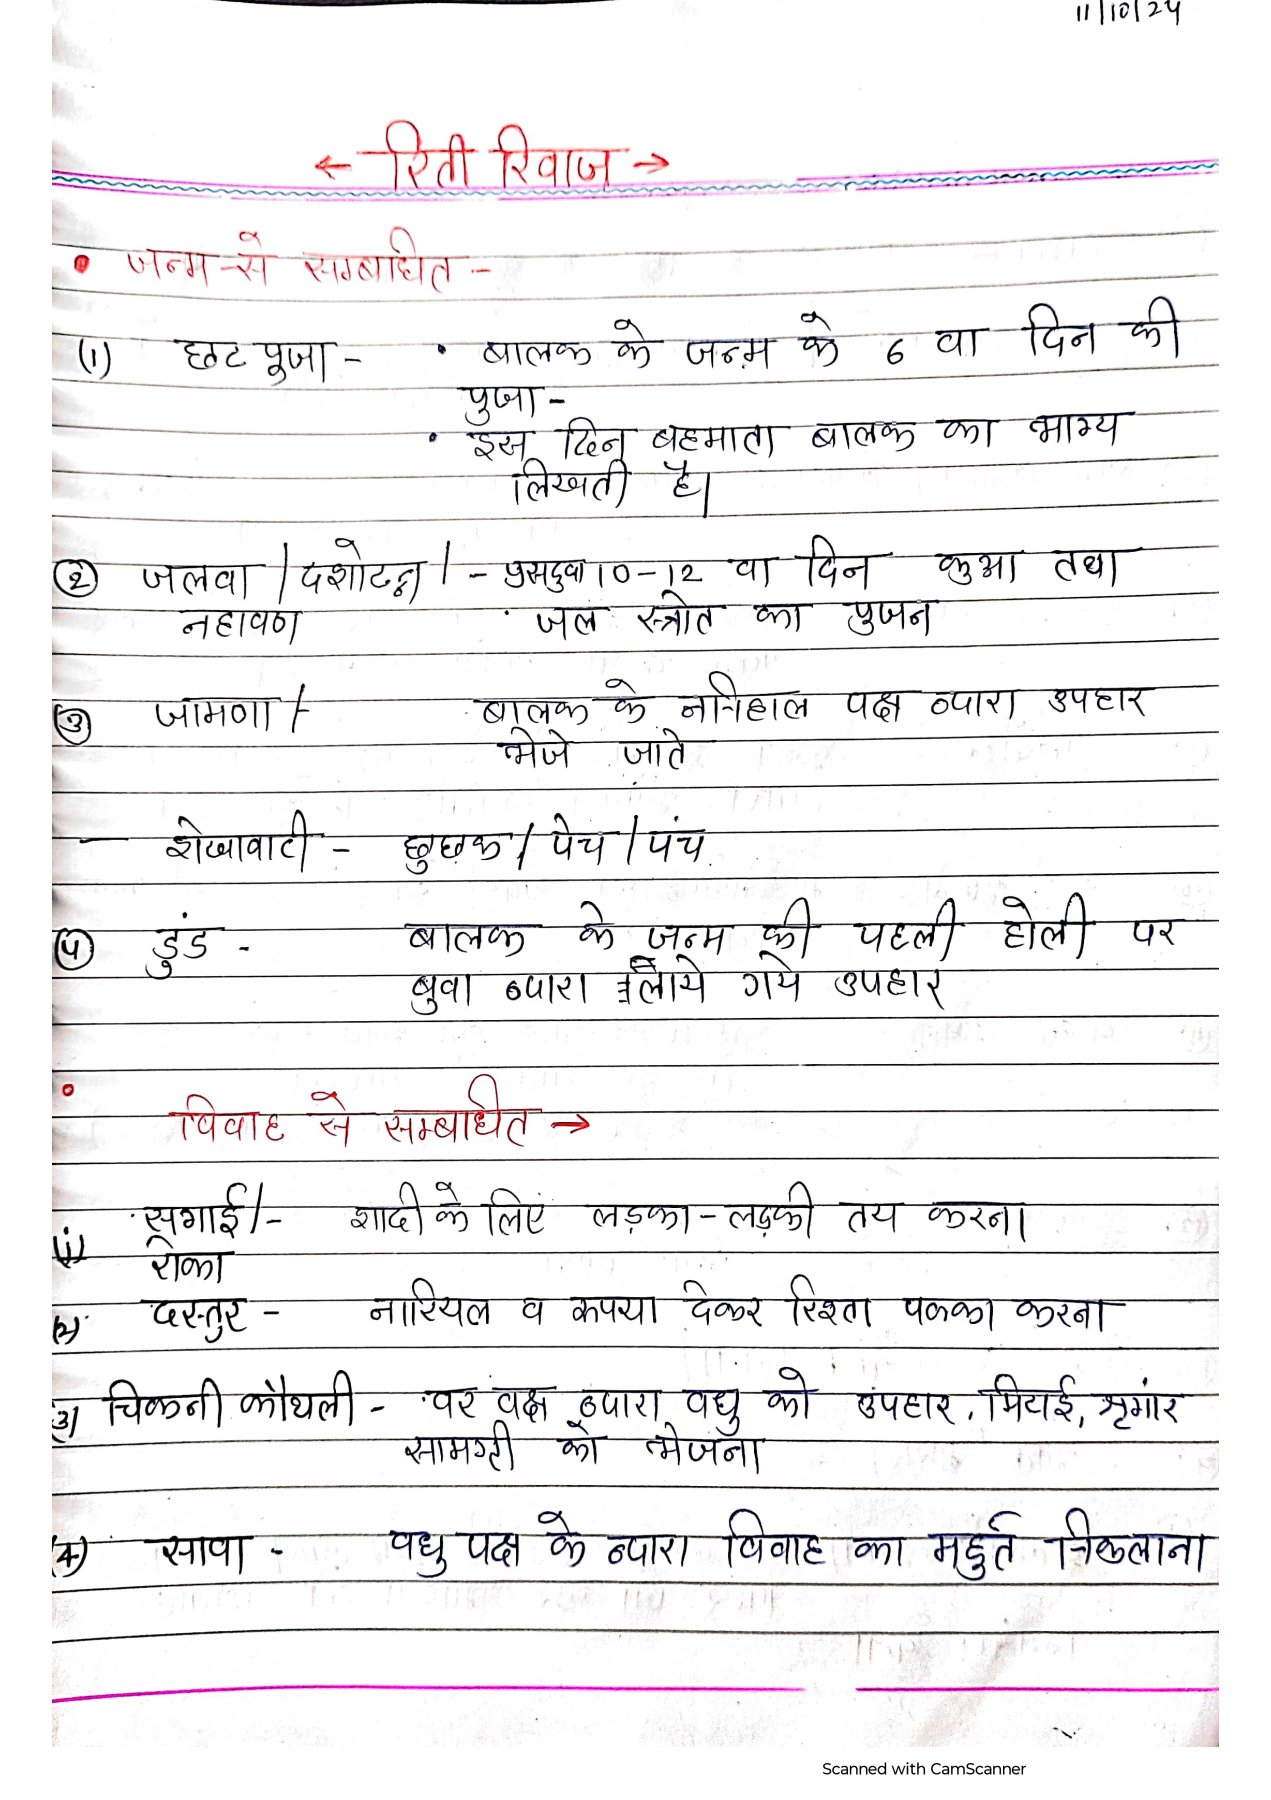 11/10/24
← रिती रिवाज →
• जन्म से सम्बाधित -
(1) छट पूजा - • बालक के जन्म के 6 वा दिन की
पुजा -
• इस दिन बहमाता बालक का भाग्य
लिखती है।
(2) जलवा / दशोटन / - प्रसदुवा 10-12 वा दिन कुआ तथा
नहावण जल स्त्रोत का पुजन
(3) जामणा /- बालक के ननिहाल पक्ष व्दारा उपहार
भेजे जाते
- शेखावाटी - छुछक / पेच / पंच
(4) ढुंढ - बालक के जन्म की पहली होली पर
बुवा व्दारा लाये गये उपहार
• विवाह से सम्बाधित →
(1) सगाई /- शादी के लिएं लड़का - लड़की तय करना
रोका
(2) दस्तुर - नारियल व रूपया देकर रिश्ता पक्का करना
(3) चिकनी कौथली - वर पक्ष व्दारा वधु को उपहार, मिटाई, श्रृगांर
सामग्री को भेजना
(4) सावा - वधु पक्ष के व्दारा विवाह का मुहुर्त निकलाना
Scanned with CamScanner